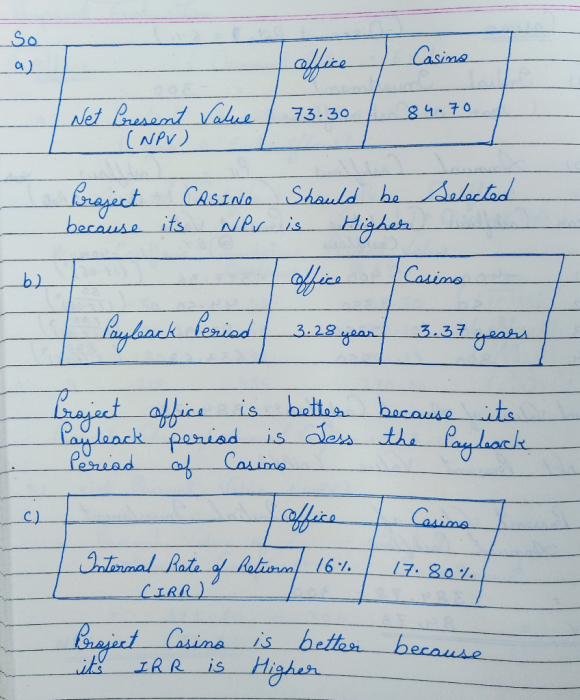 So
a) office Casino
Net Present Value 73.30 84.70
(NPV)
Project CASINO Should be Selected
because its NPV is Higher
b) office Casino
Payback Period 3.28 year 3.37 years
Project office is better because its
Payback period is Less the Payback
Period of Casino
c) office Casino
Internal Rate of Return 16% 17.80%
(IRR)
Project Casino is better because
its IRR is Higher